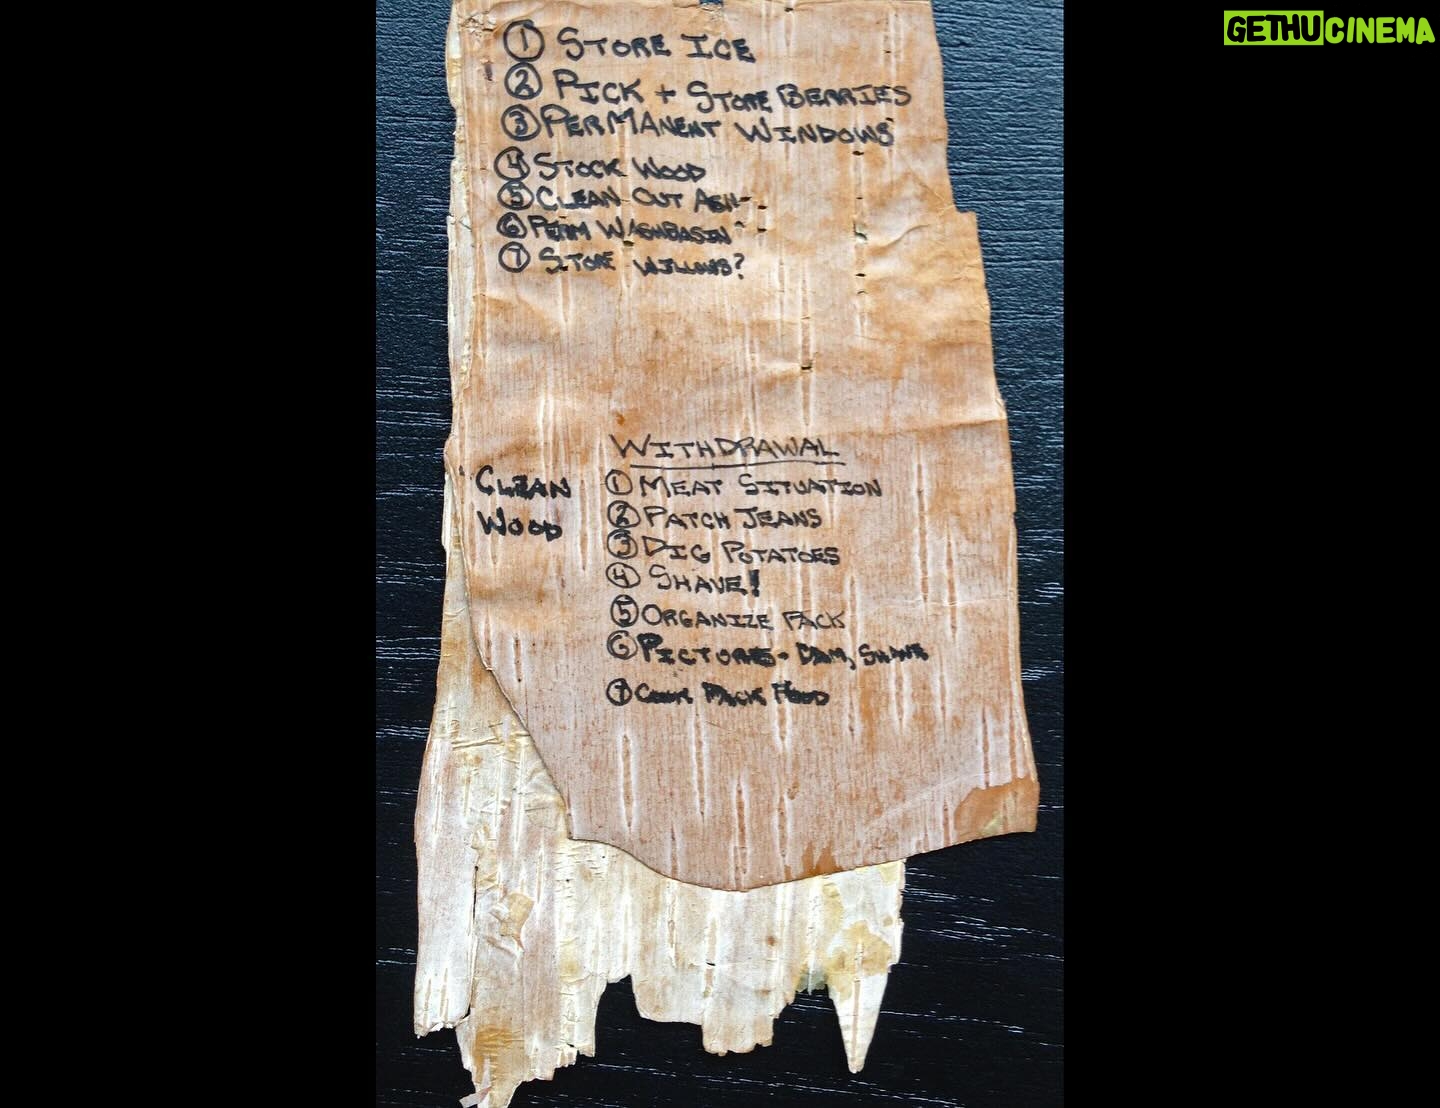 GETHUCINEMA
① STORE ICE
② PICK + STORE BERRIES
③ PERMANENT WINDOWS
④ STOCK WOOD
⑤ CLEAN OUT ASH
⑥ PERM WASHBASIN
⑦ STORE WILLOWS?
WITHDRAWAL
CLEAN
WOOD
① MEAT SITUATION
② PATCH JEANS
③ DIG POTATOES
④ SHAVE!
⑤ ORGANIZE PACK
⑥ PICTURES - DAM, SHAVE
⑦ COOK PACK FOOD